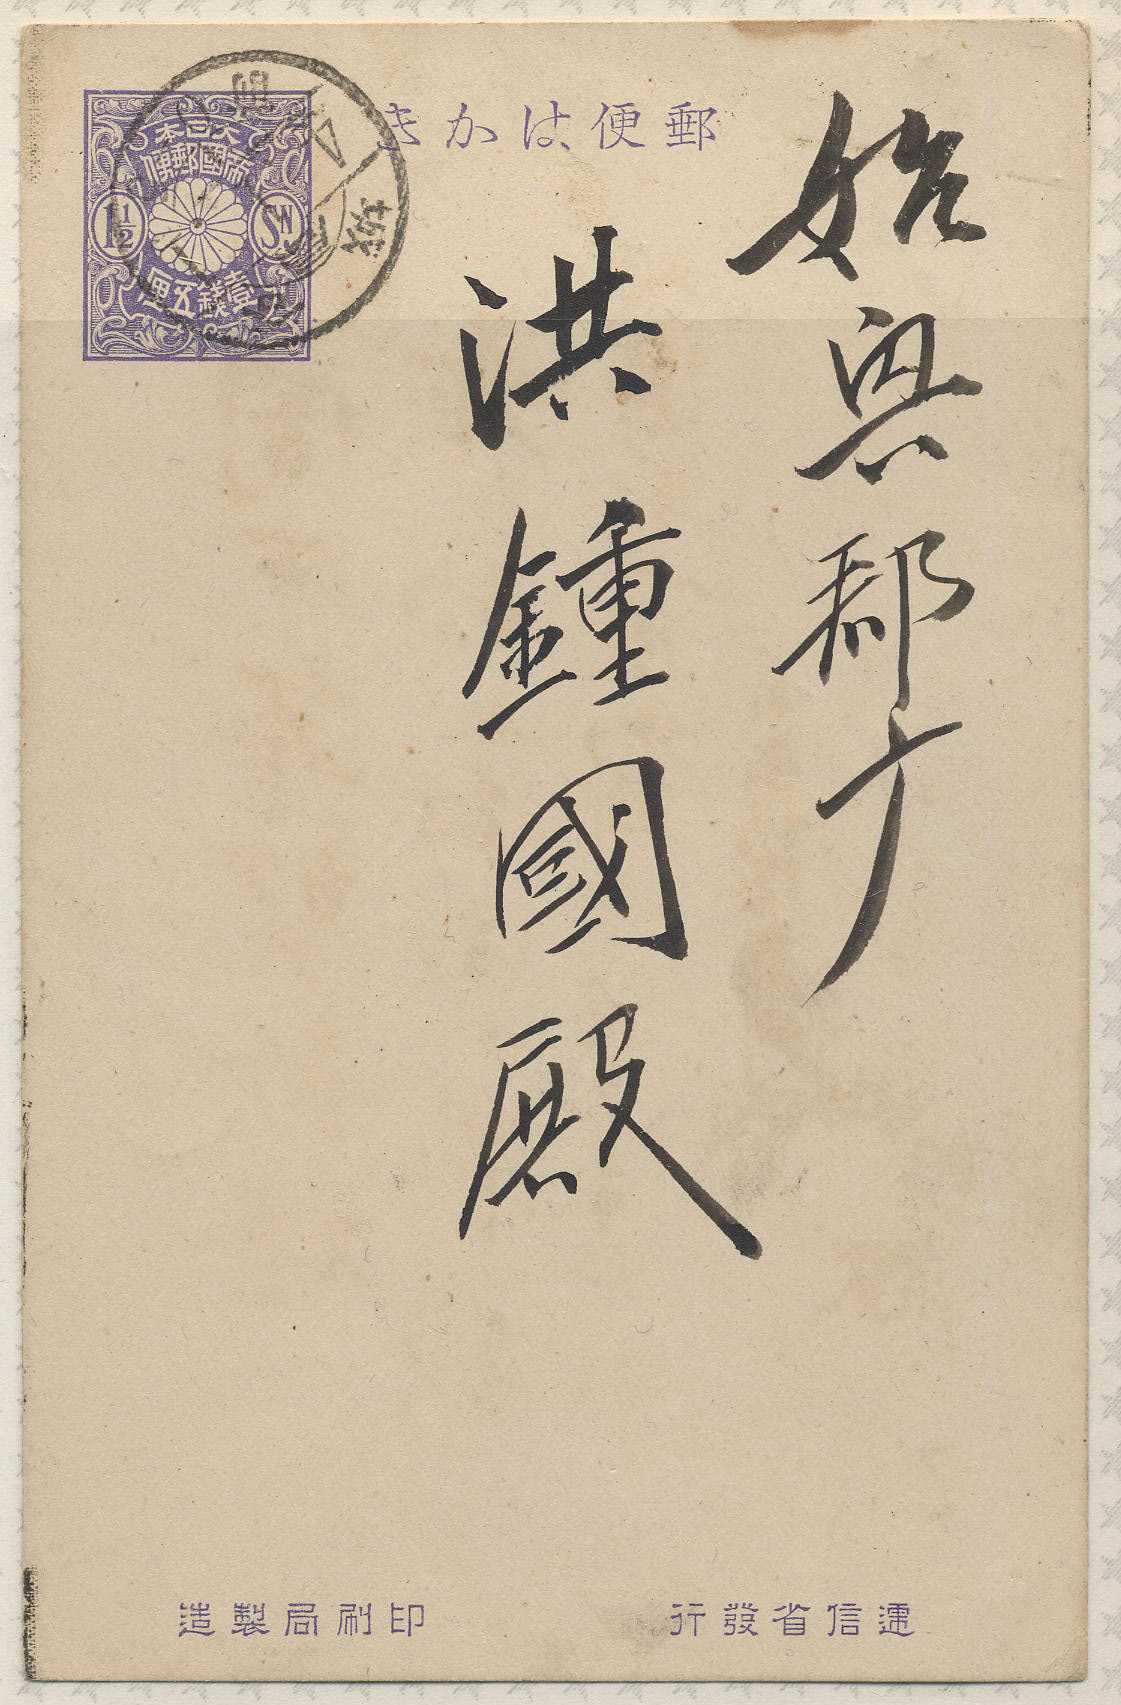 郵便はかき
大日本
帝國郵便
1½
SN
壹錢五厘
始興郡庁
洪鍾國殿
遞信省發行
印刷局製造